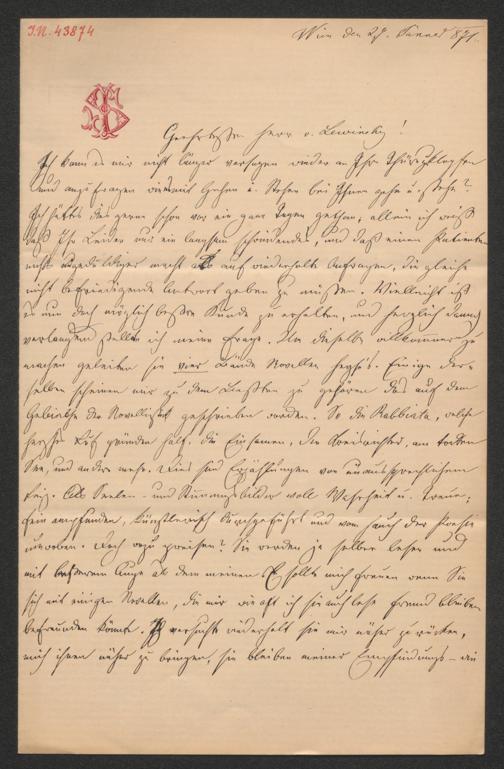 I.N. 43874
Wien den 29. Januar 871.
Geehrtester Herr v. Lewinsky!
Ich kann es mir nicht länger versagen wieder an Ihre Thüre zu klopfen
und anzufragen wie's mit Gehen u. Stehen bei Ihnen gehe u. stehe?
Ich hätte dies gerne schon vor ein paar Tagen gethan; allein ich weiß
daß Ihr Leiden nur ein langsam schwindendes, und daß einen Patienten
nichts ungeduldiger macht als auf wiederholte Anfragen, die gleiche
nicht befriedigende Antwort geben zu müssen. Vielleicht ist
es nun doch möglich bessere Kunde zu erhalten, und herzlich darnach
verlangend stelle ich meine Frage. Um dieselbe willkommener zu
machen geleiten sie vier Bände Novellen Heyse's. Einige der-
selben scheinen mir zu dem Besten zu gehören das auf dem
Gebiethe der Novellistik geschrieben worden. So die Rabbiata, welche
Heyse's Ruf gründen half. Die Einsamen, Der Kreisrichter, am todten
See, und andere mehr. Dies sind Erzählungen von unaussprechlichem
Reiz. Seelen- und Stimmungsbilder voll Wahrheit u. Treue;
fein empfunden, künstlerisch durchgeführt und vom Hauch der Poesie
umwoben. Doch wozu preisen? Sie werden ja selber lesen und
mit besserem Auge als dem meinen. Es sollte mich freuen wenn Sie
sich mit einigen Novellen, die mir wie oft ich sie auch lese fremd bleiben
befreunden könnten. Ich versuchte wiederholt sie mir näher zu rücken,
mich ihnen näher zu bringen, sie bleiben meiner Empfindungs- wie